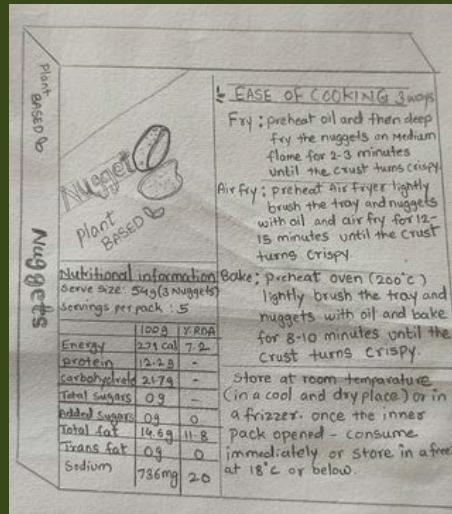 Plant
BASED
Nuggets
Nugget
Plant
BASED
Nutritional information
Serve size: 54g (3 Nuggets)
Servings per pack : 5
100g %RDA
Energy 279 Cal 7.2
protein 12.2g -
carbohydrate 21.7g -
Total sugars 0g -
Added sugars 0g 0
Total fat 14.6g 11.8
Trans fat 0g 0
Sodium 736mg 20
EASE OF COOKING 3 ways
Fry : preheat oil and then deep
fry the nuggets on Medium
flame for 2-3 minutes
until the crust turns crispy.
Air fry : preheat Air fryer lightly
brush the tray and nuggets
with oil and air fry for 12-
15 minutes until the crust
turns crispy
Bake : preheat oven (200°C)
lightly brush the tray and
nuggets with oil and bake
for 8-10 minutes until the
crust turns crispy.
Store at room temparature
(in a cool and dry place) or in
a frizzer. once the inner
pack opened - consume
immediately or store in a free
at 18°C or below.